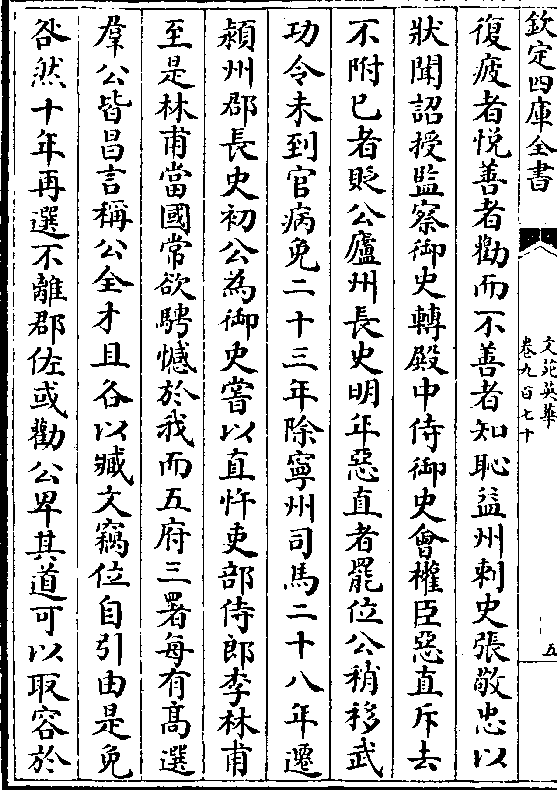 欽定四庫全書
文苑英華
卷九百七十
五
復疲者悦善者勸而不善者知恥益州刺史張敬忠以
狀聞詔授監察御史轉殿中侍御史會權臣惡直斥去
不附已者貶公廬州長史明年惡直者罷位公稍移武
功令未到官病免二十三年除寧州司馬二十八年遷
潁州郡長史初公為御史嘗以直忤吏部侍郎李林甫
至是林甫當國常欲騁憾於我而五府三署每有髙選
羣公皆昌言稱公全才且各以臧文竊位自引由是免
咎然十年再選不離郡佐或勸公卑其道可以取容於